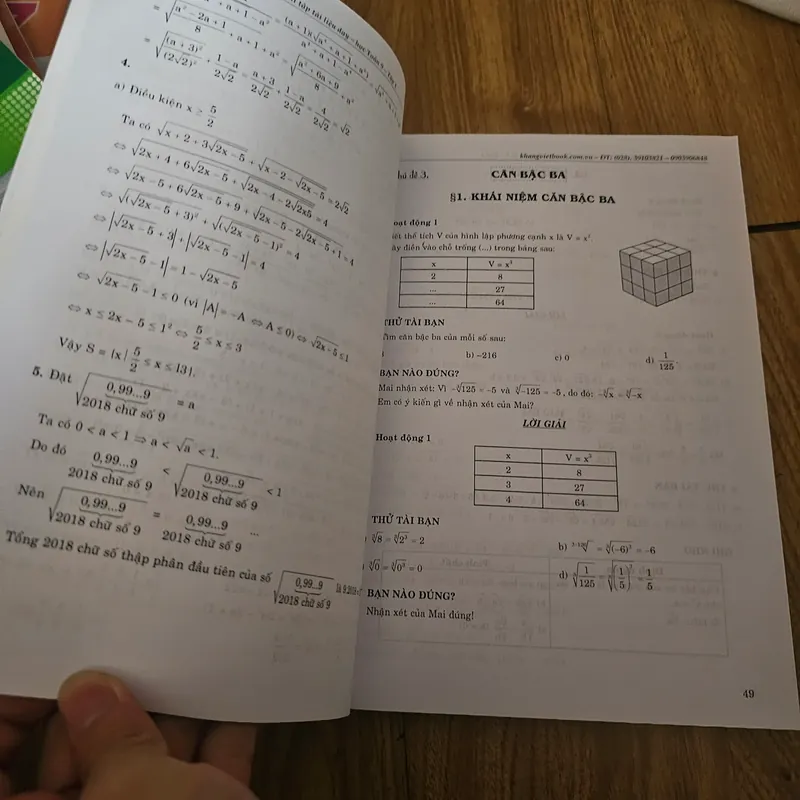 4.
a) Điều kiện x ≥ 5/2
Ta có √(x + 2 + 3√(2x – 5)) + √(x – 2 – √(2x – 5)) = 2√2
⇔ √(2x + 4 + 6√(2x – 5)) + √(2x – 4 – 2√(2x5)) = 4
⇔ √(2x – 5 + 6√(2x – 5) + 9) + √(2x – 5 – 2√(2x – 5) + 1) = 4
⇔ √((√(2x – 5) + 3)²) + √((√(2x – 5) – 1)²) = 4
⇔ |√(2x – 5) + 3| + |√(2x – 5) – 1| = 4
⇔ |√(2x – 5) – 1| = 1 – √(2x – 5)
⇔ √(2x – 5) – 1 ≤ 0 (vì |A| = –A ⇔ A ≤ 0) ⇔ √(2x – 5) ≤ 1
⇔ x ≤ 2x – 5 ≤ 1² ⇔ 5/2 ≤ x ≤ 3
Vậy S = {x | 5/2 ≤ x ≤ 13}.
5. Đặt √(0,99...9) = a
2018 chữ số 9
Ta có 0 < a < 1 ⇒ a < √a < 1.
Do đó 0,99...9 < √(0,99...9) < 1
2018 chữ số 9 2018 chữ số 9
Nên √(0,99...9) = 0,99...9 ...
2018 chữ số 9 2018 chữ số 9
Tổng 2018 chữ số thập phân đầu tiên của số √(0,99...9) là 9.2018
2018 chữ số 9
khangvietbook.com.vn – ĐT: (028). 39103821 – 0903906848
đề 3. CĂN BẬC BA
§1. KHÁI NIỆM CĂN BẬC BA
oạt động 1
iết thể tích V của hình lập phương cạnh x là V = x³.
ãy điền vào chỗ trống (...) trong bảng sau:
x V = x³
2 8
... 27
... 64
THỬ TÀI BẠN
Tìm căn bậc ba của mỗi số sau:
b) –216 c) 0 d) 1/125.
BẠN NÀO ĐÚNG?
Mai nhận xét: Vì –∛125 = –5 và ∛–125 = –5, do đó: –∛x = ∛–x
Em có ý kiến gì về nhận xét của Mai?
LỜI GIẢI
Hoạt động 1
x V = x³
2 8
3 27
4 64
THỬ TÀI BẠN
∛8 = ∛2³ = 2 b) = ∛(–6)³ = –6
∛0 = ∛0³ = 0 d) ∛(1/125) = ∛(1/5)³ = 1/5
BẠN NÀO ĐÚNG?
Nhận xét của Mai đúng!
49